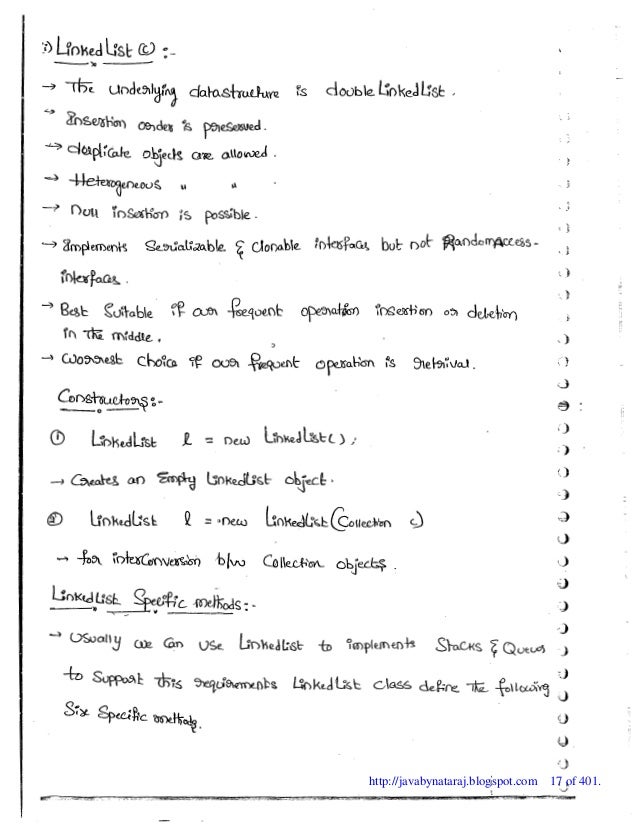 i) LinkedList (C) :-
→ The underlying datastructure is doubleLinkedList.
→ Insertion order is preserved.
→ duplicate objects are allowed.
→ Heterogeneous " "
→ Null insertion is possible.
→ Implements Serializable & Clonable interfaces but not RandomAccess-
interfaces.
→ Best Suitable if our frequent operation insertion or deletion
in the middle.
→ Worrest choice if our frequent operation is retrival.
Constructors:-
① LinkedList l = new LinkedList();
→ Creates an Empty LinkedList object.
② LinkedList l = new LinkedList(Collection c)
→ for interConversion b/w Collection objects.
LinkedList Specific methods:-
→ Usually we can use LinkedList to implements Stacks & Queues
to Support this requirements LinkedList class define the following
Six Specific methods.
http://javabynataraj.blogspot.com 17 of 401.